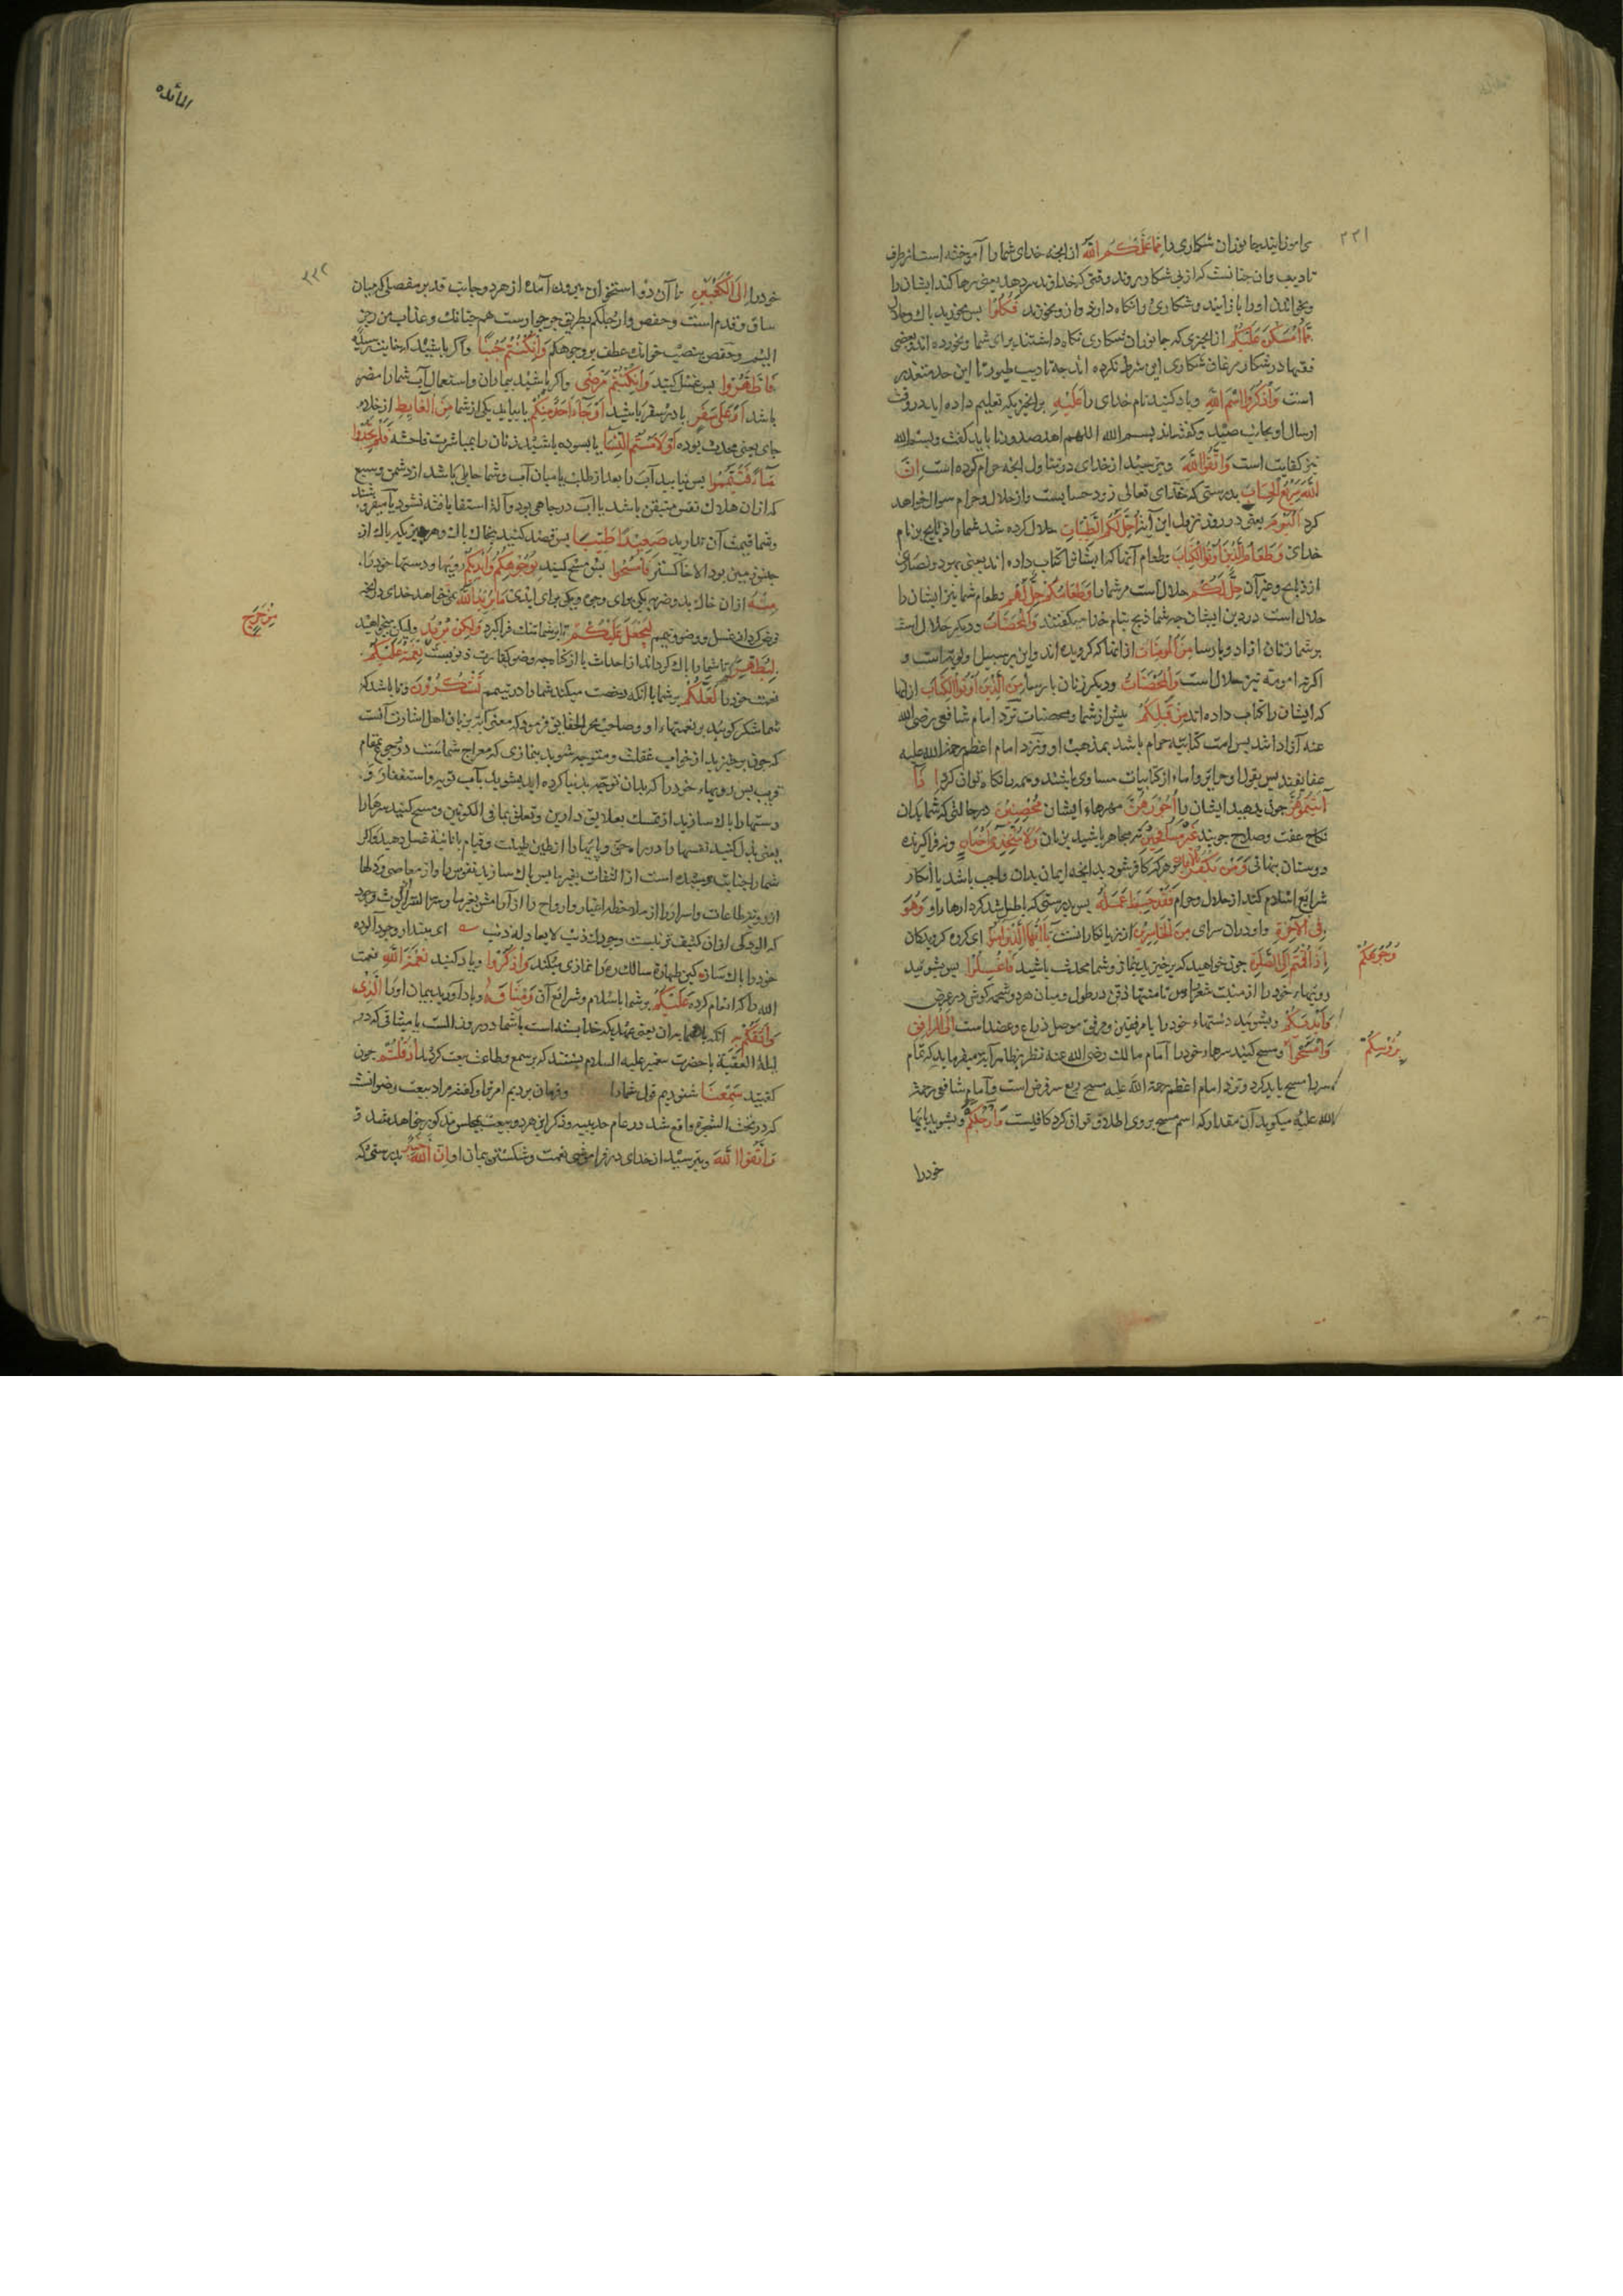 ۲۲۱
می آموزانید جانوران شکاری را مما علمکم الله از آنچه خدای شما را آموخته است از طرق
تادیب وآن چنانست که از پی شکار روند وقتی که خداوند
و شکاری را نگاه دارند وازو نخورند فکلوا پس بخورید پاک وحلال
مما امسکن علیکم از آنچیزی که جانوران شکاری نگاه داشتند برای شما ونخورده اند وبعضی
فقها در شکار مرغان شکاری این شرط نکرده اند چه تادیب طیور تا این حد متعذر
است واذکروا اسم الله ویاد کنید نام خدای را علیه بر آنچیز که تعلیم داده اید در وقت
ارسال او بجانب صید وگفته اند بسم الله اللهم باید گفت وبسم الله
نیز کفایت است واتقوا الله وبترسید از خدای در تناول آنچه حرام کرده است ان
الله سریع الحساب بدرستی که خدای تعالی زود حسابست واز حلال وحرام سوال خواهد
کرد الیوم یعنی در روز نزول این آیة احل لکم الطیبات حلال کرده شد شما را ذبایح بر نام
خدای وطعام الذین اوتوا الکتاب وطعام آنها که ایشانرا کتاب داده اند یعنی یهود ونصاری
از ذبایح وغیر آن حل لکم حلال است مر شما را وطعامکم حل لهم وطعام شما نیز ایشان را
حلال است در دین ایشان چه شما ذبح بنام خدا میکنید والمحصنات ودیگر حلال است
بر شما زنان آزاد وپارسا من المؤمنات از آنها که گرویده اند واین بر سبیل اولویت است و
اگرنه امه مؤمنه نیز حلال است والمحصنات ودیگر زنان پارسا من الذین اوتوا الکتاب از آنها
که ایشان را کتاب داده اند من قبلکم پیش از شما ومحصنات نزد امام شافعی رضی الله
عنه آزادانند پس امت کتابیه حرام باشد بمذهب او ونزد امام اعظم رحمة الله علیه
عفایفند پس بقول او حرایر واماء از کتابیات مساوی باشند وهمه را نکاح توان کرد اذا
آتیتموهن چون بدهید ایشان را اجورهن مهرهاء ایشان محصنین در حالتی که شما بدان
نکاح عفت وصلاح جویند غیر مسافحین نه مجاهر باشید بزنان ولا متخذی اخدان ونه فراگیرنده
دوستان پنهانی ومن یکفر بالایمان وهر که کافر شود بدانچه ایمان بدان واجب باشد یا انکار
شرایع اسلام کند از حلال وحرام فقد حبط عمله پس بدرستی که باطل شد کردارهاء او وهو
فی الآخرة واو در آن سرای من الخاسرین از زیانکارانست یا ایها الذین آمنوا ای گروه گرویدگان
اذا قمتم الی الصلوة چون خواهید که برخیزید بنماز وشما محدث باشید فاغسلوا پس بشوئید
وجوهکم
رویهاء خود را از منبت شعر راس تا منتهای ذقن در طول ومیان هر دو شحمه گوش در عرض
وایدیکم وبشوئید دستهاء خود را با مرفقین ومرفق موصل ذراع وعضد است الی المرافق
وامسحوا ومسح کنید سرهاء خود را امام مالک رضی الله عنه نظر بظاهر آیة میفرماید که تمام
برؤسکم
سر را مسح باید کرد ونزد امام اعظم رحمة الله علیه مسح ربع سر فرض است وامام شافعی رحمة
الله علیه میگوید آن مقدار که اسم مسح بر وی اطلاق توان کرد کافیست وارجلکم وبشوئید پایها
خود را
المائده
۲۲۲
خود را الی الکعبین تا آن دو استخوان بیرون آمده از هر دو جانب قدم بر مفصلی که میان
ساق وقدم است وحفص وارجلکم بطریق جر جوارست همچنانک وعذاب من رجز
الیم وحفص بنصب خواند عطف بر وجوهکم وان کنتم جنبا واگر باشید که جنابت رسیده
فاطهروا پس غسل کنید وان کنتم مرضی واگر باشید بیماران واستعمال آب شما را مضر
باشد او علی سفر یا در سفر باشید او جاء احد منکم یا بیاید یکی از شما من الغایط از خلا
جای یعنی محدث بوده او لامستم النسا یا بسوده باشید زنان را بمباشرت فاحشه فلم تجدوا
ماء فتیمموا پس نیابید آب را بعد از طلب یا میان آب وشما حایلی باشد از دشمن وسبع
که از آن هلاک نفس متیقن باشد یا آب در چاهی بود وآلة استقا یافته نشود یا میفروشند
وشما قیمت آن ندارید صعیدا طیبا پس قصد کنید بخاک پاک وهر چیز که پاک از
جنس زمین بود الا خاکستر فامسحوا پس مسح کنید بوجوهکم وایدیکم رویها ودستهاء خود را
منه از آن خاک بدو ضربه یکی برای وجه ویکی برای ایدی ما یرید الله نمی خواهد خدای در آنچه
فرض کرد از غسل ووضو وتیمم لیجعل علیکم تا بر شما تنگ فراگیرد ولکن یرید ولیکن میخواهد
من حرج
لیطهرکم تا شما را پاک گرداند از احداث یا از گناه نعمته علیکم
نعمت خود را لعلکم بر شما با آنکه رخصت میکند شما را در تیمم تشکرون وتا باشد که
شما شکر گوئید بر نعمتهاء او وصاحب بحر الحقایق فرموده که معنی آیة بزبان اهل اشارت آنست
که چون برخیزید از خواب غفلت ومتوجه شوید بنمازی که معراج شماست در رجوع بمقام
قرب پس رویهاء خود را که بدان توجه بدنیا کرده اید بشوئید بآب توبه واستغفار و
دستها را پاک سازید از تمسک بعلایق دارین وتعلق بما فی الکونین ومسح کنید سرها را
یعنی بذل کنید نفسها را در راه حق وپایها را از طین طینت وقیام بانانیة غسل دهید واگر
شما را جنابت رسیده است از التفات بغیر ما پس پاک سازید نفوس را از معاصی ودلها
از رویة طاعات واسرار را از ملاحظه اغیار وارواح را از آرامش بغیر ما
که آلودگی از آن کثیف تر نیست وجودک ذنب لا یعادله ذنب ای بپندار وجود آلوده
خود را پاک ساز کین طهارة سالک ره را نمازی میکند واذکروا ویاد کنید نعمة الله نعمت
الله را که انعام کرده علیکم بر شما باسلام وشرایع آن ومیثاقه ویاد آورید پیمان او را الذی
واثقکم به آنکه بدان یعنی عهدیکه خدا بسته است با شما در روز الست یا میثاقی که در
لیلة العقبة با حضرت پیغمبر علیه السلام بستند که بر سمع وطاعت بیعت کردید اذ قلتم چون
گفتید سمعنا شنودیم قول شما را وفرمان بردیم امر شما را وگفته اند مراد بیعت رضوانست
که در تحت الشجرة واقع شد در عام حدیبیه وذکر این هر دو بیعت بمجالس مذکور خواهد شد و
واتقوا الله وبترسید از خدای در فراموشی نعمت وشکستن پیمان او ان الله بدرستی که